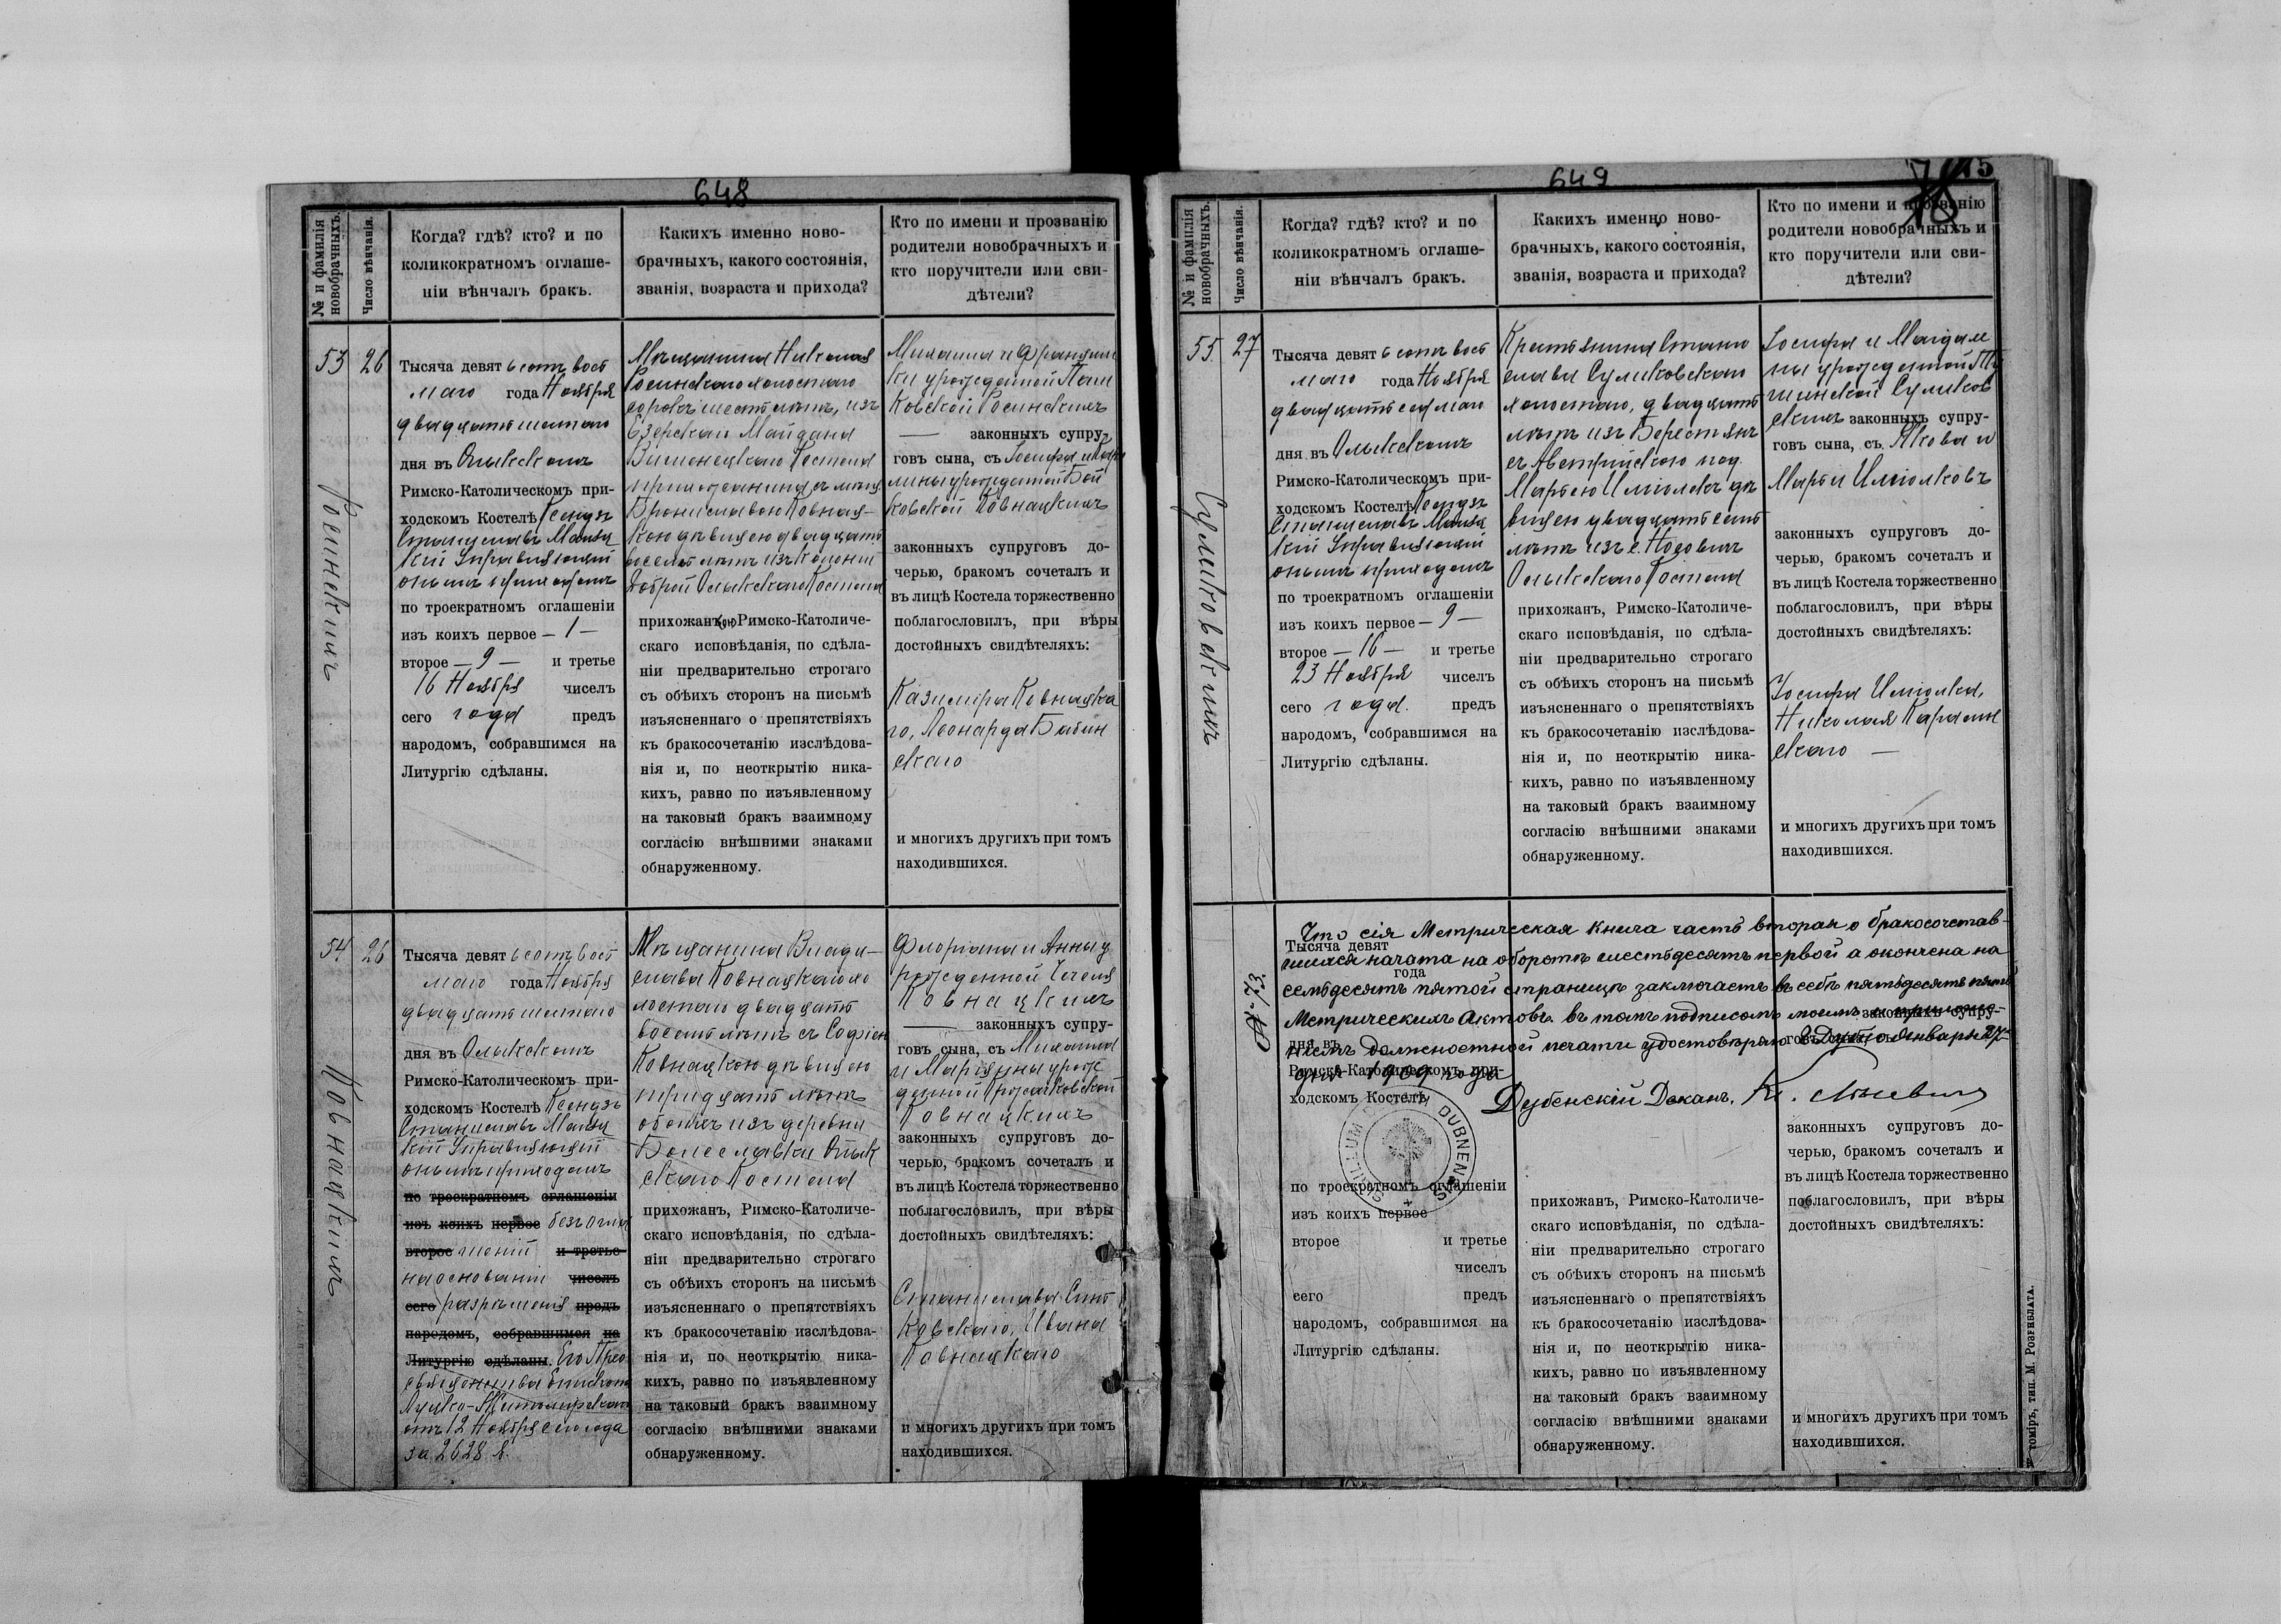 648
№ и фамилія новобрачныхъ.
Число вѣнчанія.
Когда? гдѣ? кто? и по
коликократномъ оглаше-
ніи вѣнчалъ бракъ.
Какихъ именно ново-
брачныхъ, какого состоянія,
званія, возраста и прихода?
Кто по имени и прозванію
родители новобрачныхъ и
кто поручители или сви-
дѣтели?
53
Росинскихъ
26
Тысяча девятьсотъ вось
маго года Ноября
двадцать шестаго
дня въ Олыкскомъ
Римско-Католическомъ при-
ходскомъ Костелѣ Ксендзъ
Станиславъ
кій Управляющій
онымъ приходомъ
по троекратномъ оглашеніи
изъ коихъ первое — 1 —
второе — 9 — и третье
16 Ноября чиселъ
сего года предъ
народомъ, собравшимся на
Литургію сдѣланы.
Мѣщанина Николая
Росинскаго холостаго
сорокъ шесть лѣтъ, изъ
Езерскаго Майдана
Костела
прихожанина съ мѣщ.
Брониславою Ковнац-
кою дѣвицею двадцать
восемь лѣтъ изъ Колоніи
Доброй Олыкскаго Костела
прихожанкою Римско-Католиче-
скаго исповѣданія, по сдѣла-
ніи предварительно строгаго
съ обѣихъ сторонъ на письмѣ
изъясненнаго о препятствіяхъ
къ бракосочетанію изслѣдова-
нія и, по неоткрытію ника-
кихъ, равно по изъявленному
на таковый бракъ взаимному
согласію внѣшними знаками
обнаруженному.
Михаила и Францишки
урожденной
ковской Росинскихъ
— законныхъ супру-
говъ сына, съ Іосифа и
урожденной Бой
ковской Ковнацкихъ
законныхъ супруговъ до-
черью, бракомъ сочеталъ и
въ лицѣ Костела торжественно
поблагословилъ, при вѣры
достойныхъ свидѣтеляхъ:
Казимира Ковнацка
го, Леонарда Бабин
скаго
и многихъ другихъ при томъ
находившихся.
54
Ковнацкихъ
26
Тысяча девятьсотъ вось
маго года Ноября
двадцать шестаго
дня въ Олыкскомъ
Римско-Католическомъ при-
ходскомъ Костелѣ Ксендзъ
Станиславъ
кій Управляющій
онымъ приходомъ
по троекратномъ оглашеніи
изъ коихъ первое безъ огла
второе шеній и третье
на основаніи чиселъ
сего разрѣшенія предъ
народомъ, собравшимся на
Литургію сдѣланы. Его Прео
священства Епископа
Луцко-Житомирскаго
отъ 12 Ноября сего года
за 2628 №.
Мѣщанина Влади-
слава Ковнацкаго хо
лостаго двадцать
восемь лѣтъ съ Софіею
Ковнацкою дѣвицею
тридцать лѣтъ
обоихъ изъ деревни
Болеславки Олык
скаго Костела
прихожан, Римско-Католиче-
скаго исповѣданія, по сдѣла-
ніи предварительно строгаго
съ обѣихъ сторонъ на письмѣ
изъясненнаго о препятствіяхъ
къ бракосочетанію изслѣдова-
нія и, по неоткрытію ника-
кихъ, равно по изъявленному
на таковый бракъ взаимному
согласію внѣшними знаками
обнаруженному.
Флоріана и Анны у
рожденной
Ковнацкихъ
— законныхъ супру-
говъ сына, съ Михаила
и Маріанны урож
денной
Ковнацкихъ
законныхъ супруговъ до-
черью, бракомъ сочеталъ и
въ лицѣ Костела торжественно
поблагословилъ, при вѣры
достойныхъ свидѣтеляхъ:
Станислава
ковскаго, Ивана
Ковнацкаго
и многихъ другихъ при томъ
находившихся.
649
75
№ и фамилія новобрачныхъ.
Число вѣнчанія.
Когда? гдѣ? кто? и по
коликократномъ оглаше-
ніи вѣнчалъ бракъ.
Какихъ именно ново-
брачныхъ, какого состоянія,
званія, возраста и прихода?
Кто по имени и прозванію
родители новобрачныхъ и
кто поручители или сви-
дѣтели?
55.
Суликовскихъ
27
Тысяча девятьсотъ вось
маго года Ноября
двадцать седьмаго
дня въ Олыкскомъ
Римско-Католическомъ при-
ходскомъ Костелѣ Ксендзъ
Станиславъ
кій Управляющій
онымъ приходомъ
по троекратномъ оглашеніи
изъ коихъ первое — 9 —
второе — 16 — и третье
23 Ноября чиселъ
сего года. предъ
народомъ, собравшимся на
Литургію сдѣланы.
Крестьянина Стани
слава Суликовскаго
холостаго, двадцать
лѣтъ изъ Берестянъ
съ Австрійскою под.
Мартою дѣ
вицею двадцать семь
лѣтъ изъ с. Носовичъ
Олыкскаго Костела
прихожан, Римско-Католиче-
скаго исповѣданія, по сдѣла-
ніи предварительно строгаго
съ обѣихъ сторонъ на письмѣ
изъясненнаго о препятствіяхъ
къ бракосочетанію изслѣдова-
нія и, по неоткрытію ника-
кихъ, равно по изъявленному
на таковый бракъ взаимному
согласію внѣшними знаками
обнаруженному.
Іосифа и Магдале
ны урожденной
Суликов
скихъ законныхъ супру-
говъ сына, съ Якова и
Марти
законныхъ супруговъ до-
черью, бракомъ сочеталъ и
въ лицѣ Костела торжественно
поблагословилъ, при вѣры
достойныхъ свидѣтеляхъ:
Іосифа
Николая
скаго —
и многихъ другихъ при томъ
находившихся.
№ 73.
Что сія Метрическая книга часть вторая о бракосочетав-
шихся начата на оборотѣ шестьдесятъ первой а окончена на
семьдесятъ пятой страницѣ заключаетъ въ себѣ пятьдесятъ пять
Метрическихъ Актовъ въ томъ подписомъ моимъ и приложе-
ніемъ должностной печати удостовѣряю г. Дубно Января 27
дня 1909 года
Дубенскій Деканъ, К.
SIGILLUM DUBNENSIS
Тысяча девят
года
дня въ
Римско-Католическомъ при-
ходскомъ Костелѣ
по троекратномъ оглашеніи
изъ коихъ первое
второе и третье
чиселъ
сего предъ
народомъ, собравшимся на
Литургію сдѣланы.
прихожан, Римско-Католиче-
скаго исповѣданія, по сдѣла-
ніи предварительно строгаго
съ обѣихъ сторонъ на письмѣ
изъясненнаго о препятствіяхъ
къ бракосочетанію изслѣдова-
нія и, по неоткрытію ника-
кихъ, равно по изъявленному
на таковый бракъ взаимному
согласію внѣшними знаками
обнаруженному.
законныхъ супру-
говъ сына, съ
законныхъ супруговъ до-
черью, бракомъ сочеталъ и
въ лицѣ Костела торжественно
поблагословилъ, при вѣры
достойныхъ свидѣтеляхъ:
и многихъ другихъ при томъ
находившихся.
томіръ, тип. М. Розенблата.